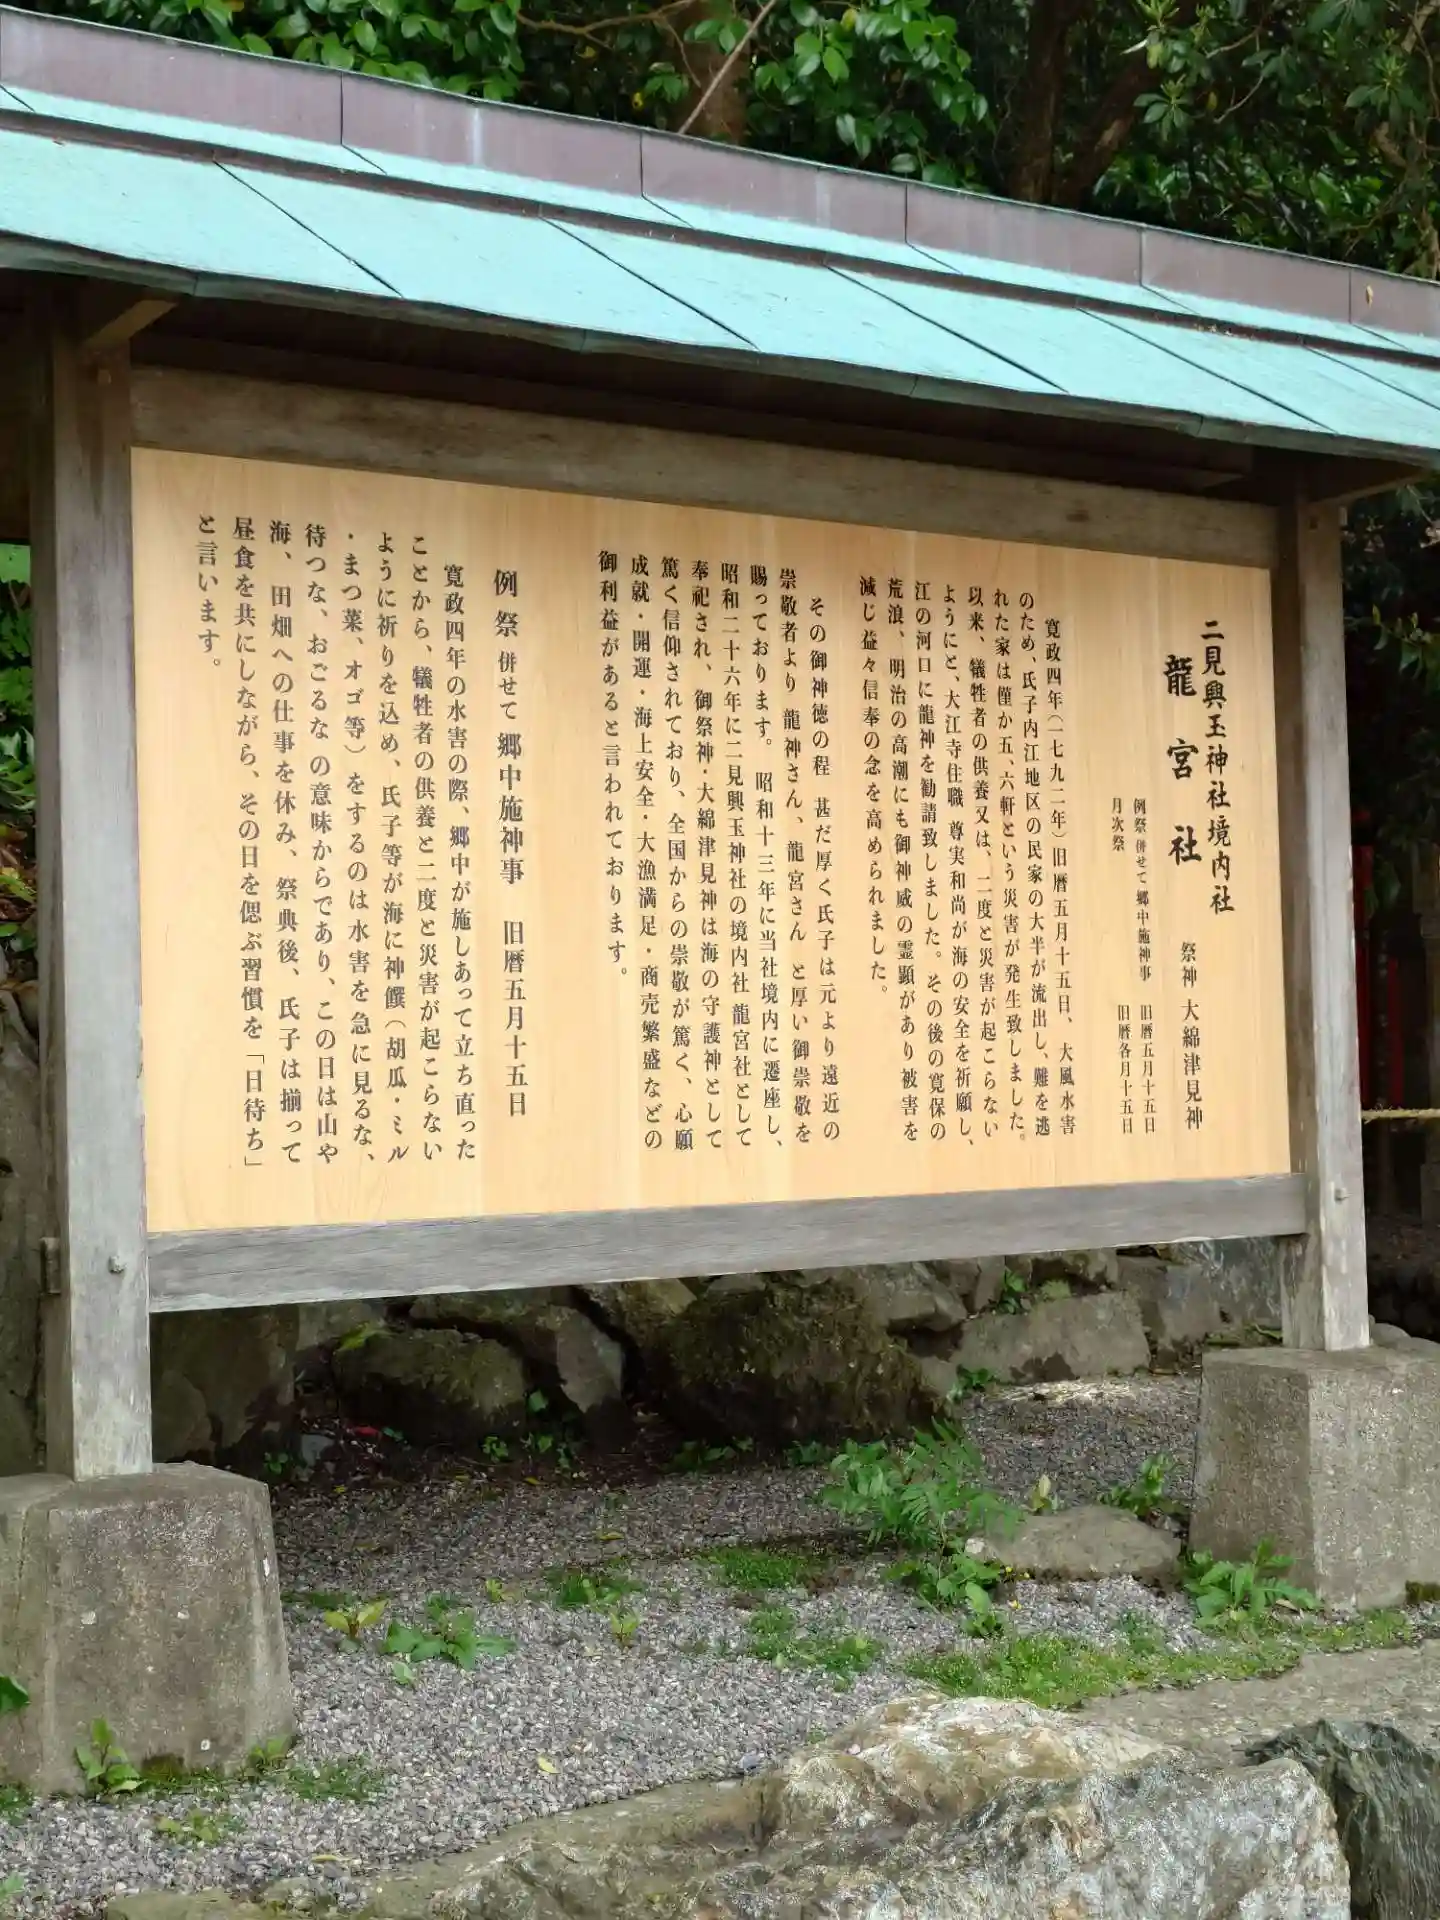 二見興玉神社境内社
龍宮社
祭神 大綿津見神
例祭 併せて 郷中施神事 旧暦五月十五日
月次祭 旧暦各月十五日
寛政四年(一七九二年)旧暦五月十五日、大風水害
のため、氏子内江地区の民家の大半が流出し、難を逃
れた家は僅か五、六軒という災害が発生致しました。
以来、犠牲者の供養又は、二度と災害が起こらない
ようにと、大江寺住職 尊実和尚が海の安全を祈願し、
江の河口に龍神を勧請致しました。その後の寛保の
荒浪、明治の高潮にも御神威の霊顕があり被害を
減じ益々信奉の念を高められました。
その御神徳の程 甚だ厚く氏子は元より遠近の
崇敬者より 龍神さん、龍宮さん と厚い御崇敬を
賜っております。昭和十三年に当社境内に遷座し、
昭和二十六年に二見興玉神社の境内社 龍宮社として
奉祀され、御祭神・大綿津見神は海の守護神として
篤く信仰されており、全国からの崇敬が篤く、心願
成就・開運・海上安全・大漁満足・商売繁盛などの
御利益があると言われております。
例祭 併せて 郷中施神事 旧暦五月十五日
寛政四年の水害の際、郷中が施しあって立ち直った
ことから、犠牲者の供養と二度と災害が起こらない
ように祈りを込め、氏子等が海に神饌(胡瓜・ミル
・まつ菜、オゴ等)をするのは水害を急に見るな、
待つな、おごるな の意味からであり、この日は山や
海、田畑への仕事を休み、祭典後、氏子は揃って
昼食を共にしながら、その日を偲ぶ習慣を「日待ち」
と言います。